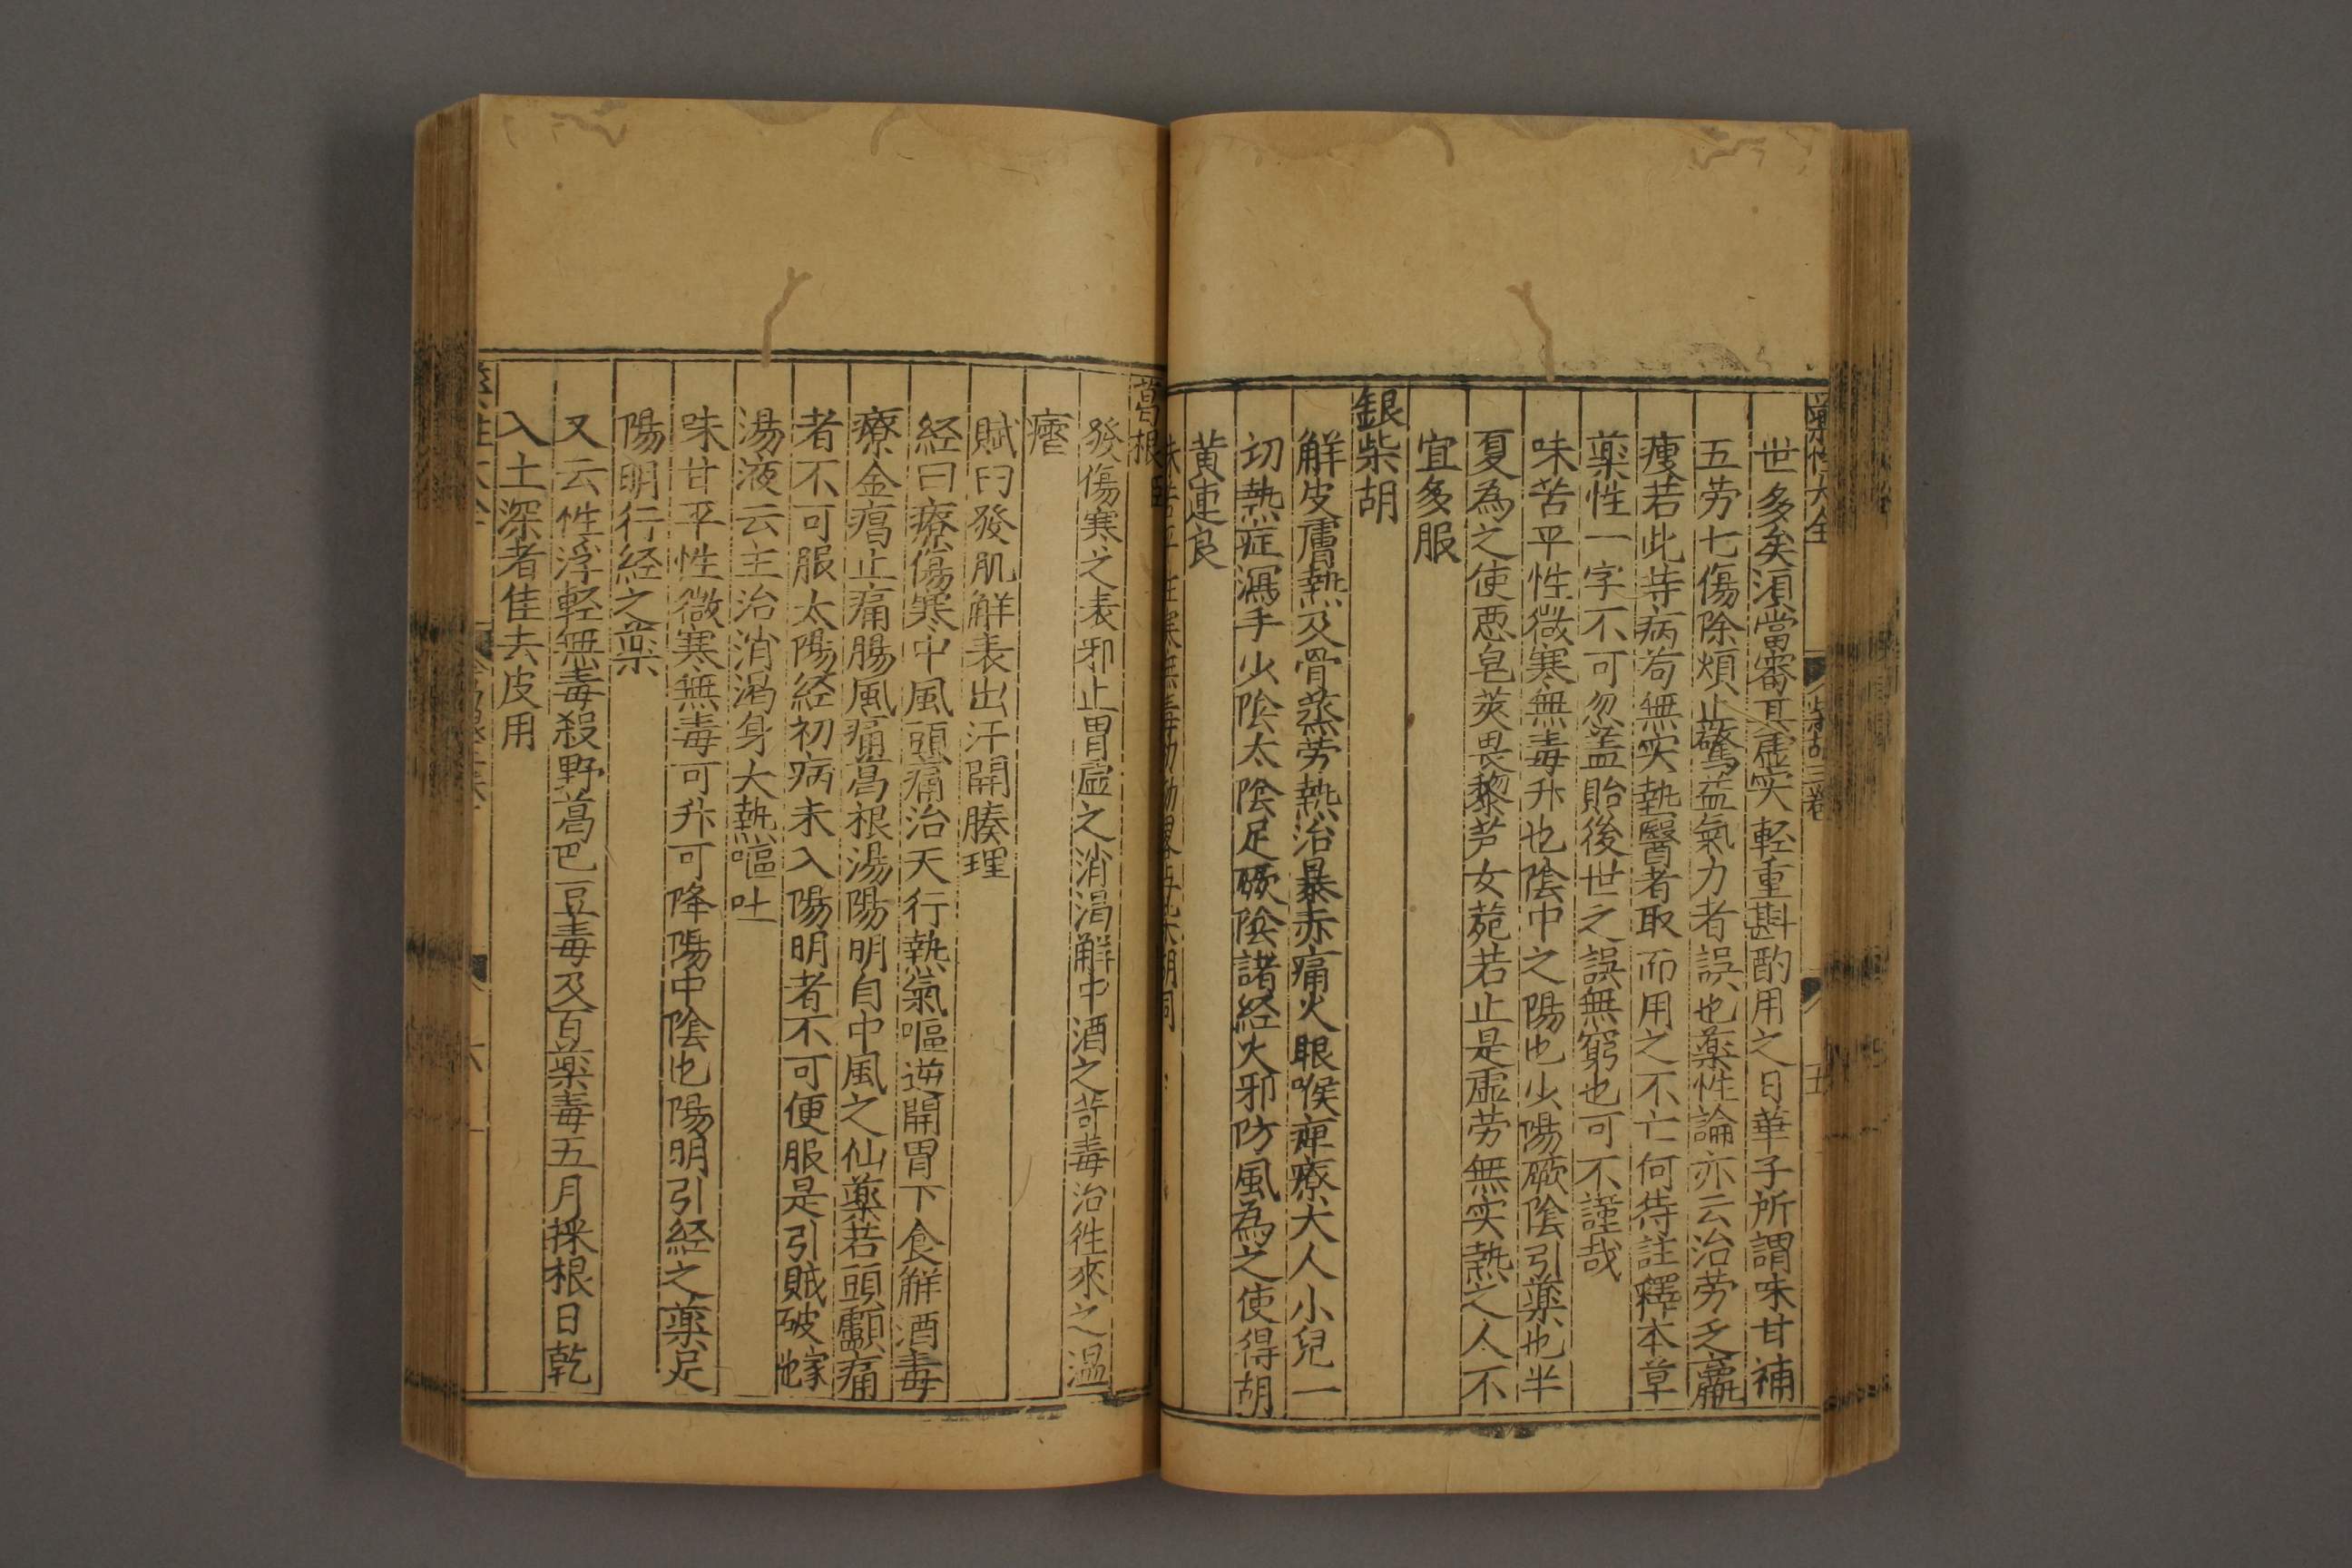 藥性大全 柴胡三卷 五
世多矣須當審其虛实輕重斟酌用之日華子所謂味甘補
五劳七傷除煩止驚益氣力者誤也藥性論亦云治劳乏羸
瘦若此等病苟無实熱醫者取而用之不亡何待註釋本草
藥性一字不可忽盖貽後世之誤無窮也可不謹哉
味苦平性微寒無毒升也陰中之陽也少陽厥陰引藥也半
夏為之使惡皂莢畏藜芦女菀若止是虛劳無实熱之人不
宜多服
銀柴胡
解皮膚熱及骨蒸劳熱治暴赤痛火眼喉痺療大人小兒一
切熱症瀉手少陰太陰足厥陰諸経火邪防風為之使得胡
黄連良
葛根
發傷寒之表邪止胃虛之消渴解中酒之苛毒治徃來之温
瘧
賦曰發肌解表出汗開腠理
経曰療傷寒中風頭痛治天行熱氣嘔逆開胃下食解酒毒
療金瘡止痛腸風痛葛根湯陽明自中風之仙藥若頭顱痛
者不可服太陽経初病未入陽明者不可便服是引賊破家
湯液云主治消渴身大熱嘔吐
味甘平性微寒無毒可升可降陽中陰也陽明引経之藥足
陽明行経之藥
又云性浮輕無毒殺野葛巴豆毒及百藥毒五月採根日乾
入土深者佳去皮用
六